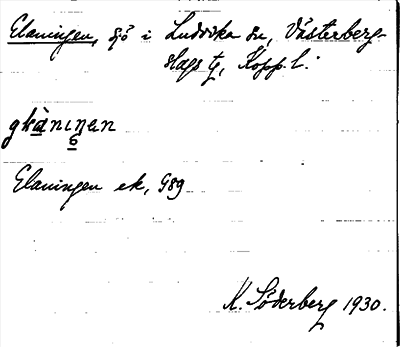 Glaningen, sjö i Ludvika sn, Västerberg-
slags tg, Kopp l.
Glaningen ek, G89
K. Söderberg 1930.